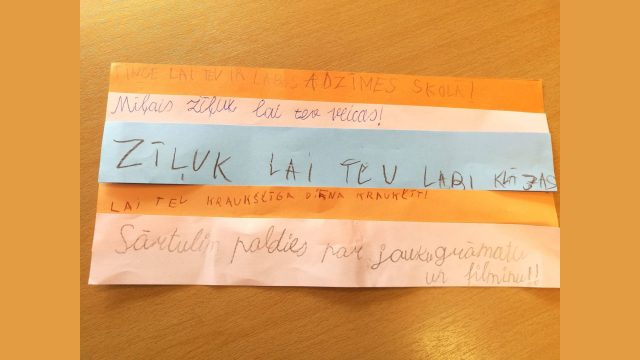 LAI TEV IR LABAS ADZĪMES SKOLĀ!
Mīļais zīļuk lai tev veicas!
ZĪĻUK LAI TEV LABI KLĀJAS
LAI TEV KRAUKŠĶĪGA DIENA KRAUKŠĶĪTI
Sārtulīn paldies par jauku grāmatu
un filmiņu!!